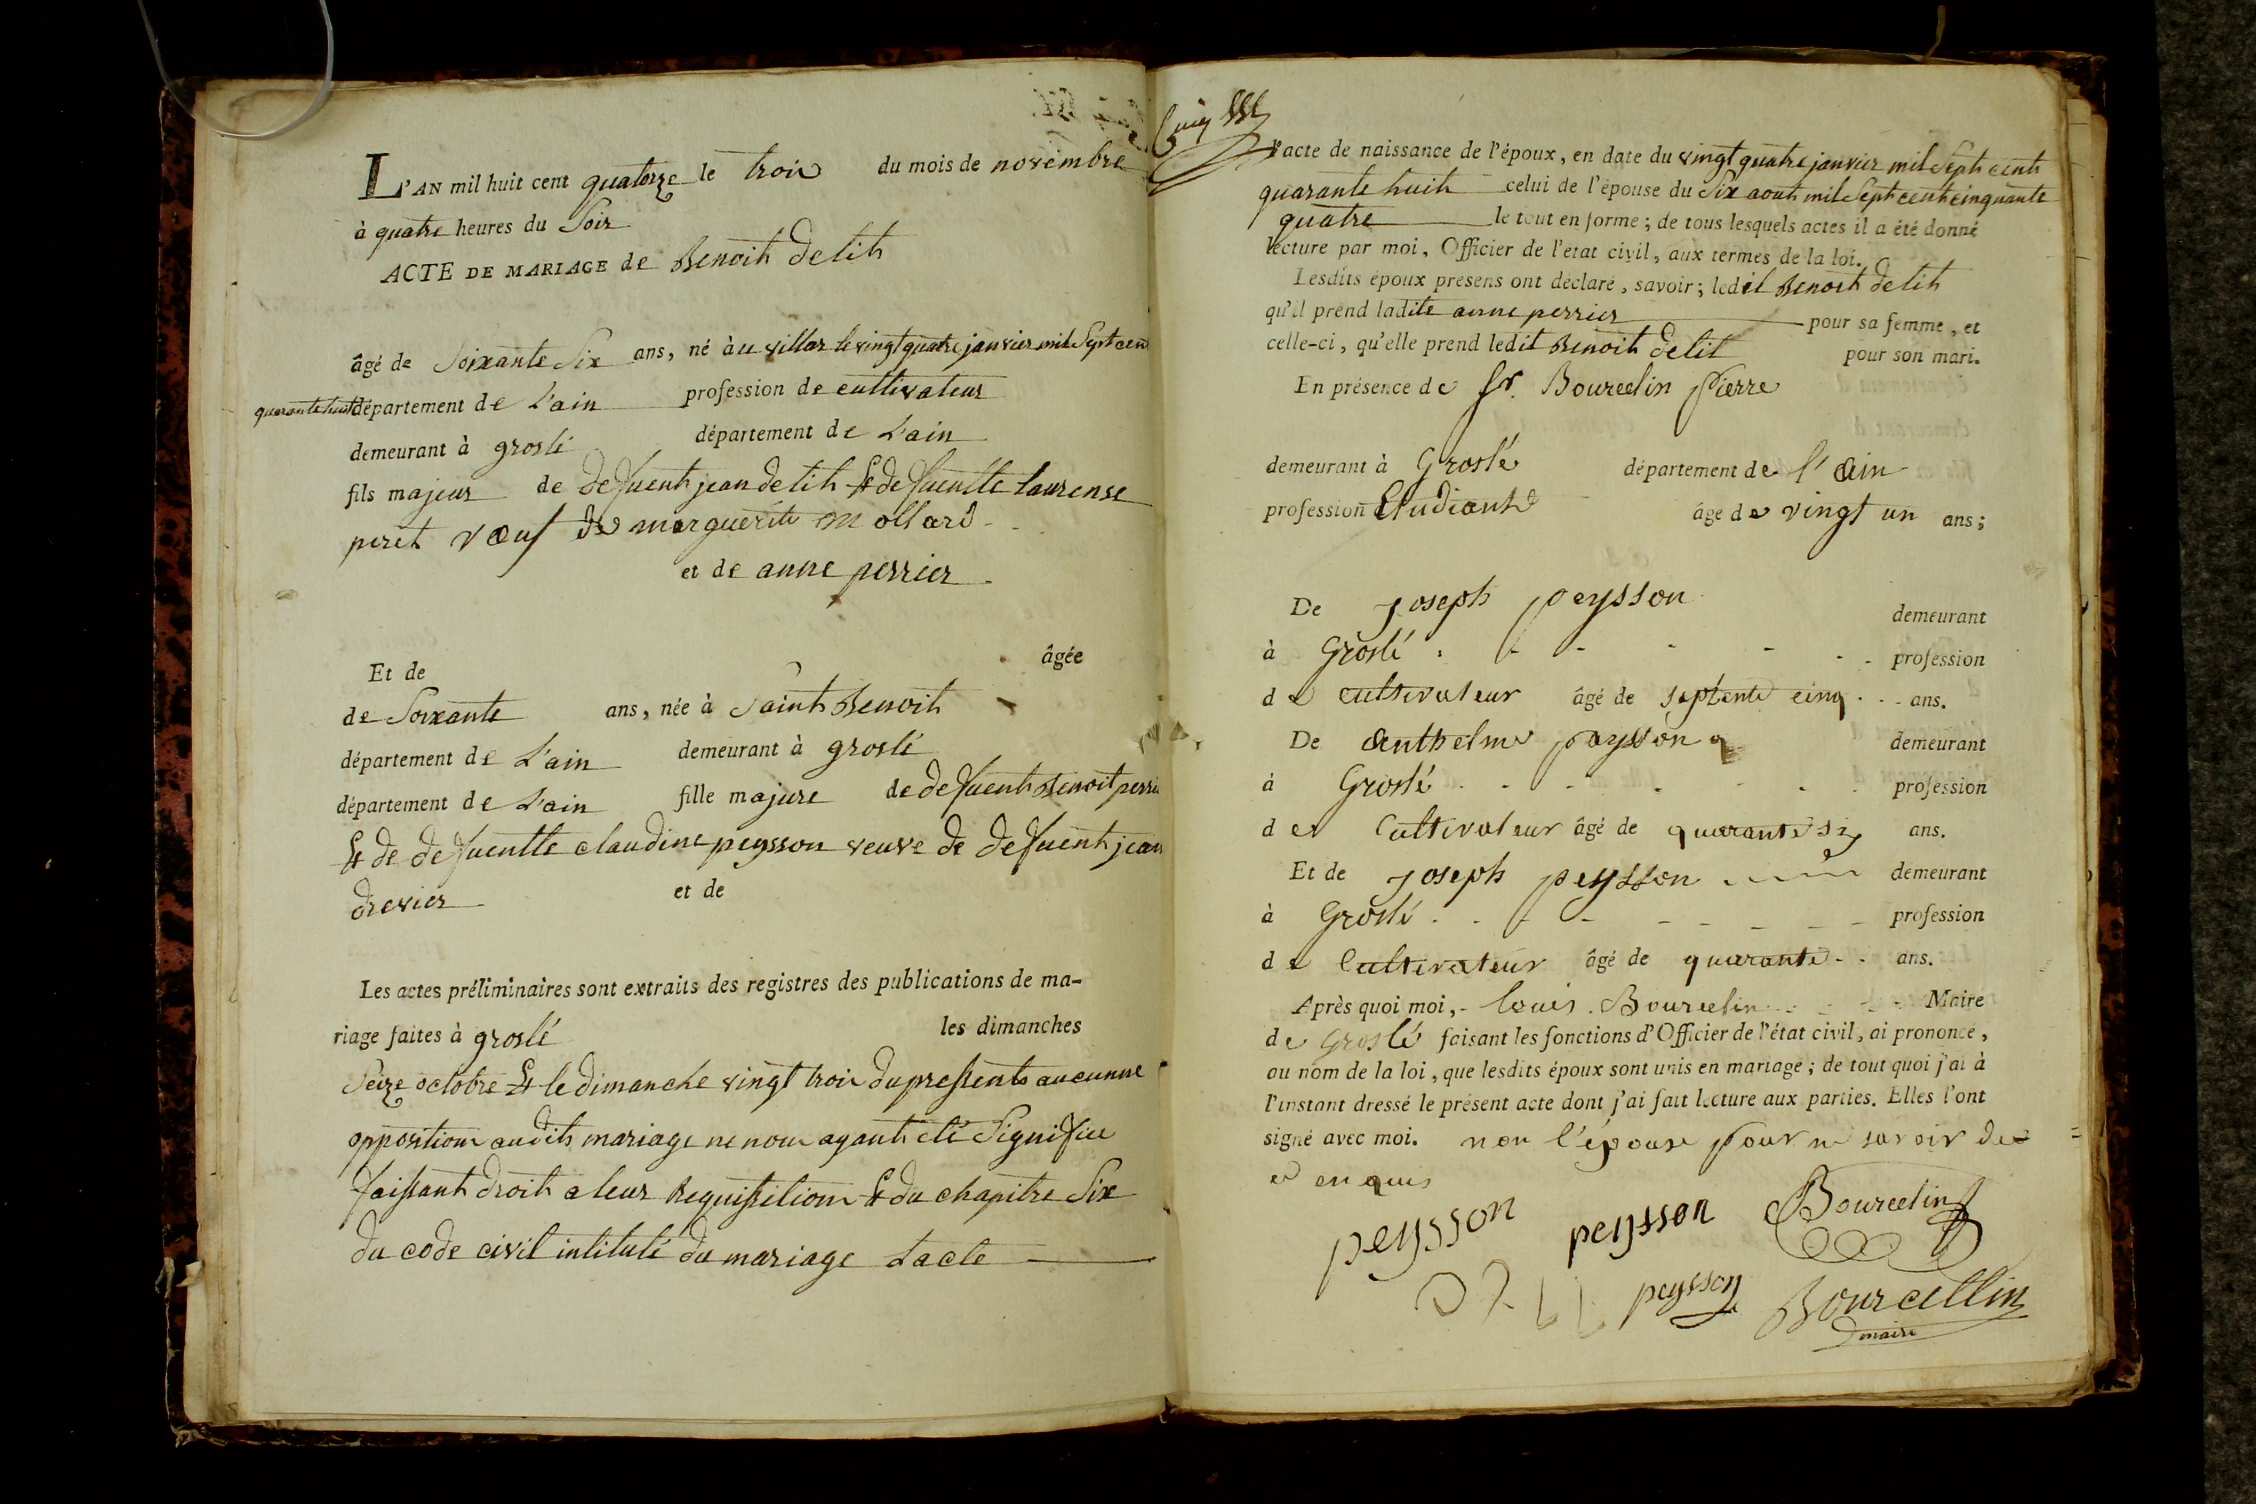 L'AN mil huit cent quatorze le trois du mois de novembre
à quatre heures du soir
ACTE DE MARIAGE de Benoit Detit
âgé de soixante six ans, né au villar le vingt quatre janvier mil sept cent
quarante huit département de L'ain profession de cultivateur
demeurant à groslé département de L'ain
fils majeur de defuent jean detit Et defuentte laurense
peret vœuf de marguerite mollard
et de anne perrier
Et de âgée
de soixante ans, née à saint Benoit
département de L'ain demeurant à groslé
département de L'ain fille majeure de defuent Benoit perrier
Et de defuentte claudine peysson veuve de defuent jean
drevier et de
Les actes préliminaires sont extraits des registres des publications de ma-
riage faites à groslé les dimanches
seize octobre Et le dimanche vingt trois du pressent aucunne
opposition audit mariage ne nous ayant été signifiee
faissant droit a leur Requissition Et du chapitre six
du code civil intitulé du mariage Lacte
l'acte de naissance de l'époux, en date du vingt quatre janvier mil sept cent
quarante huit celui de l'épouse du six aout mil sept cent cinquante
quatre le tout en forme; de tous lesquels actes il a été donné
lecture par moi, Officier de l'etat civil, aux termes de la loi.
Lesdits époux présens ont déclaré, savoir; ledit Benoit detit
qu'il prend ladite anne perrier pour sa femme, et
celle-ci, qu'elle prend ledit Benoit detit pour son mari.
En présence de sr. Bourcelin pierre
demeurant à Groslé département de l'ain
profession Etudiant âge de vingt un ans;
De joseph peysson demeurant
à Groslé profession
de cultivateur âgé de septente cinq ans.
De anthelme paysson demeurant
à Groslé profession
de Cultivateur âgé de quarante six ans.
Et de joseph peysson demeurant
à Groslé profession
de Cultivateur âgé de quarante ans.
Après quoi moi, louis Bourcelin Maire
de Groslé faisant les fonctions d'Officier de l'état civil, ai prononcé,
au nom de la loi, que lesdits époux sont unis en mariage; de tout quoi j'ai à
l'instant dressé le présent acte dont j'ai fait lecture aux parties. Elles l'ont
signé avec moi. non l'épouse pour ne savoir de
e enquis
peysson peysson Bourcelin
peysson Bourcellin
maire